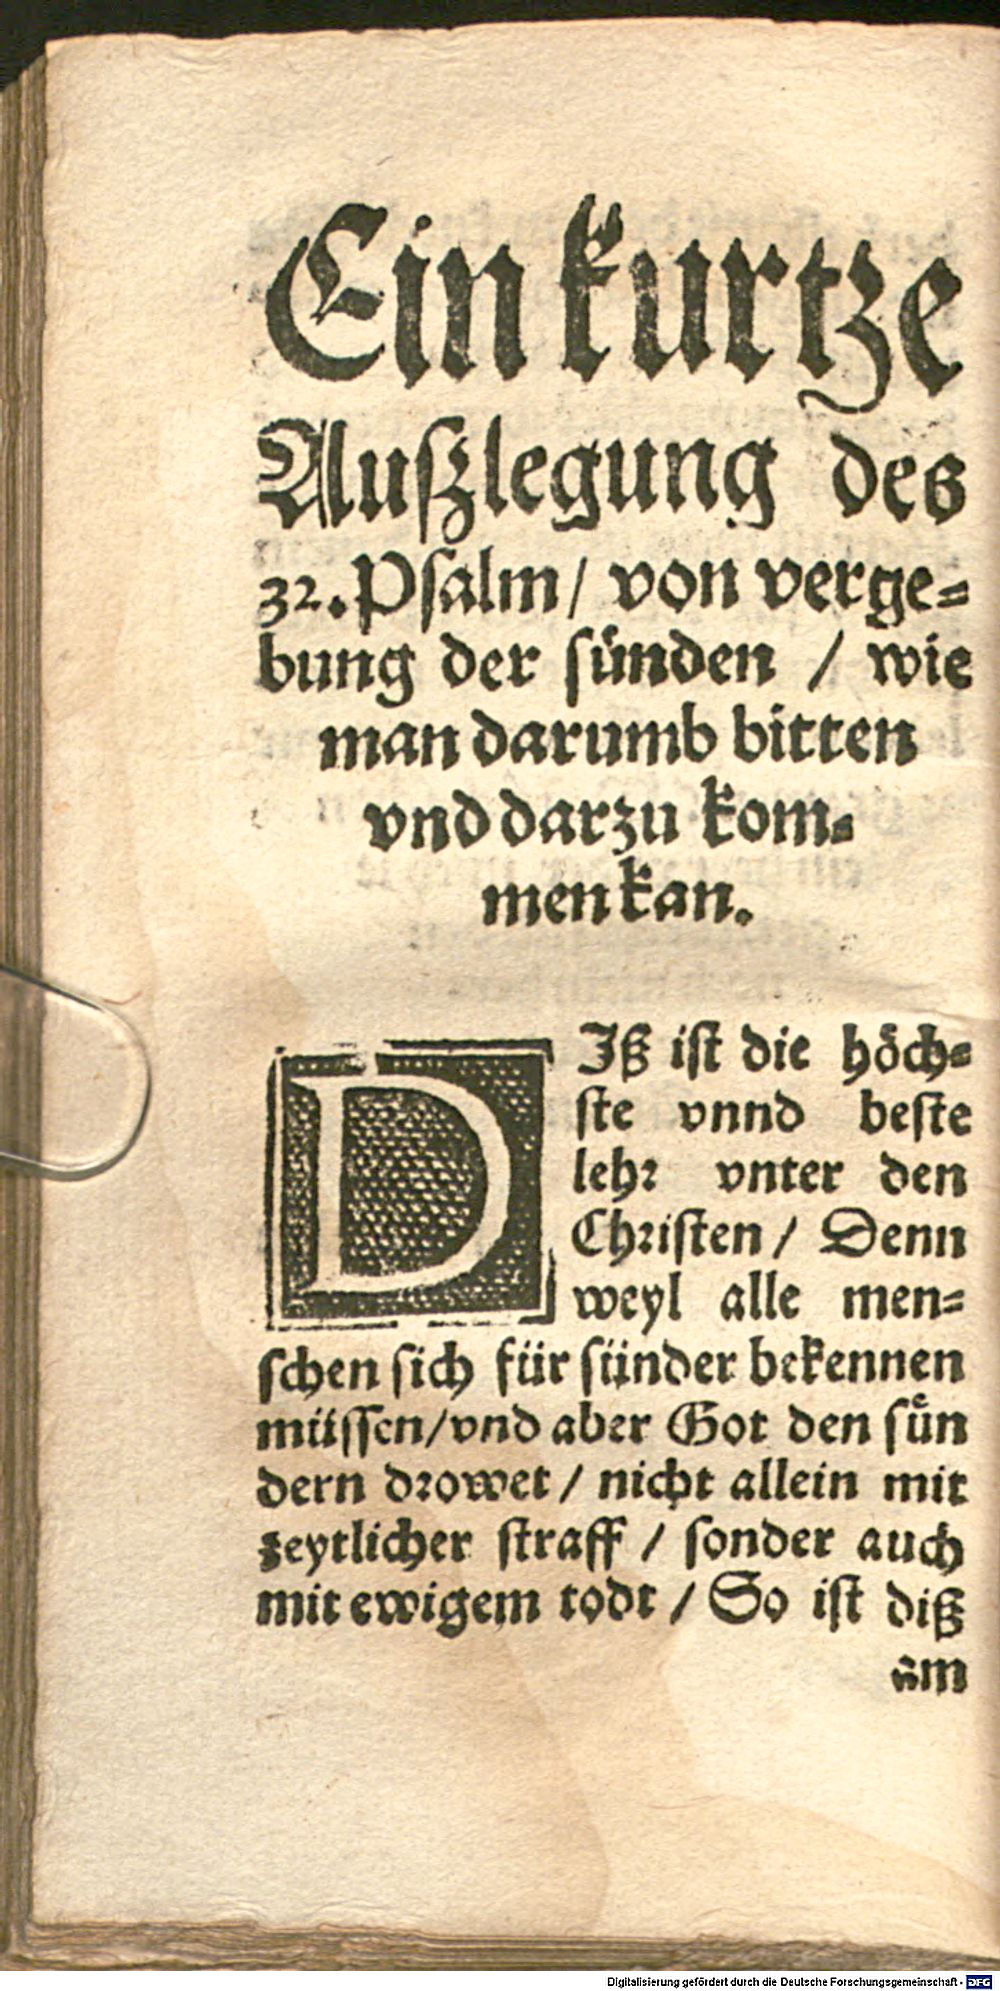 Ein kurtze
Außlegung des
32. Psalm / von verge=
bung der sünden / wie
man darumb bitten
vnd darzu kom=
men kan.
DIß ist die höch=
ste vnnd beste
lehr vnter den
Christen / Denn
weyl alle men=
schen sich für sünder bekennen
müssen / vnd aber Got den sün
dern drowet / nicht allein mit
zeytlicher straff / sonder auch
mit ewigem todt / So ist diß
Digitalisierung gefördert durch die Deutsche Forschungsgemeinschaft - DFG